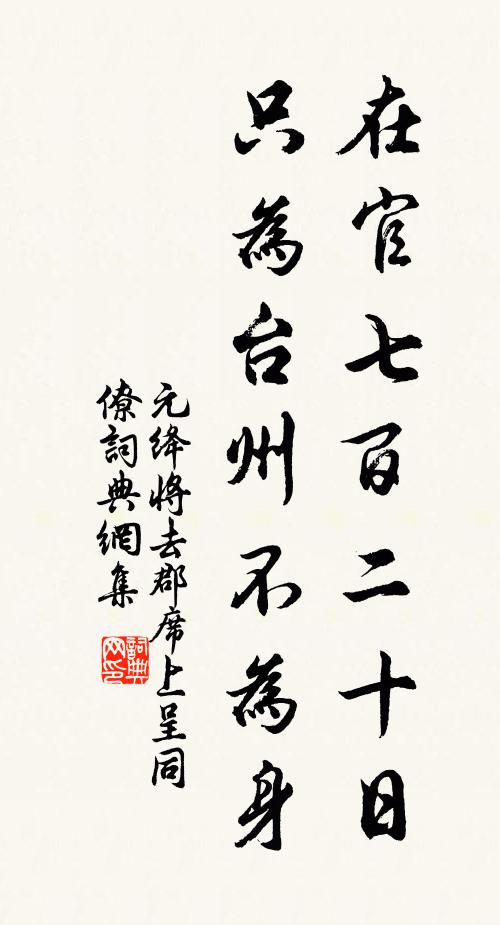 在官七百二十日
只為台州不為身
元绛將去郡席上呈同
僚詞典網集
詞典
网印